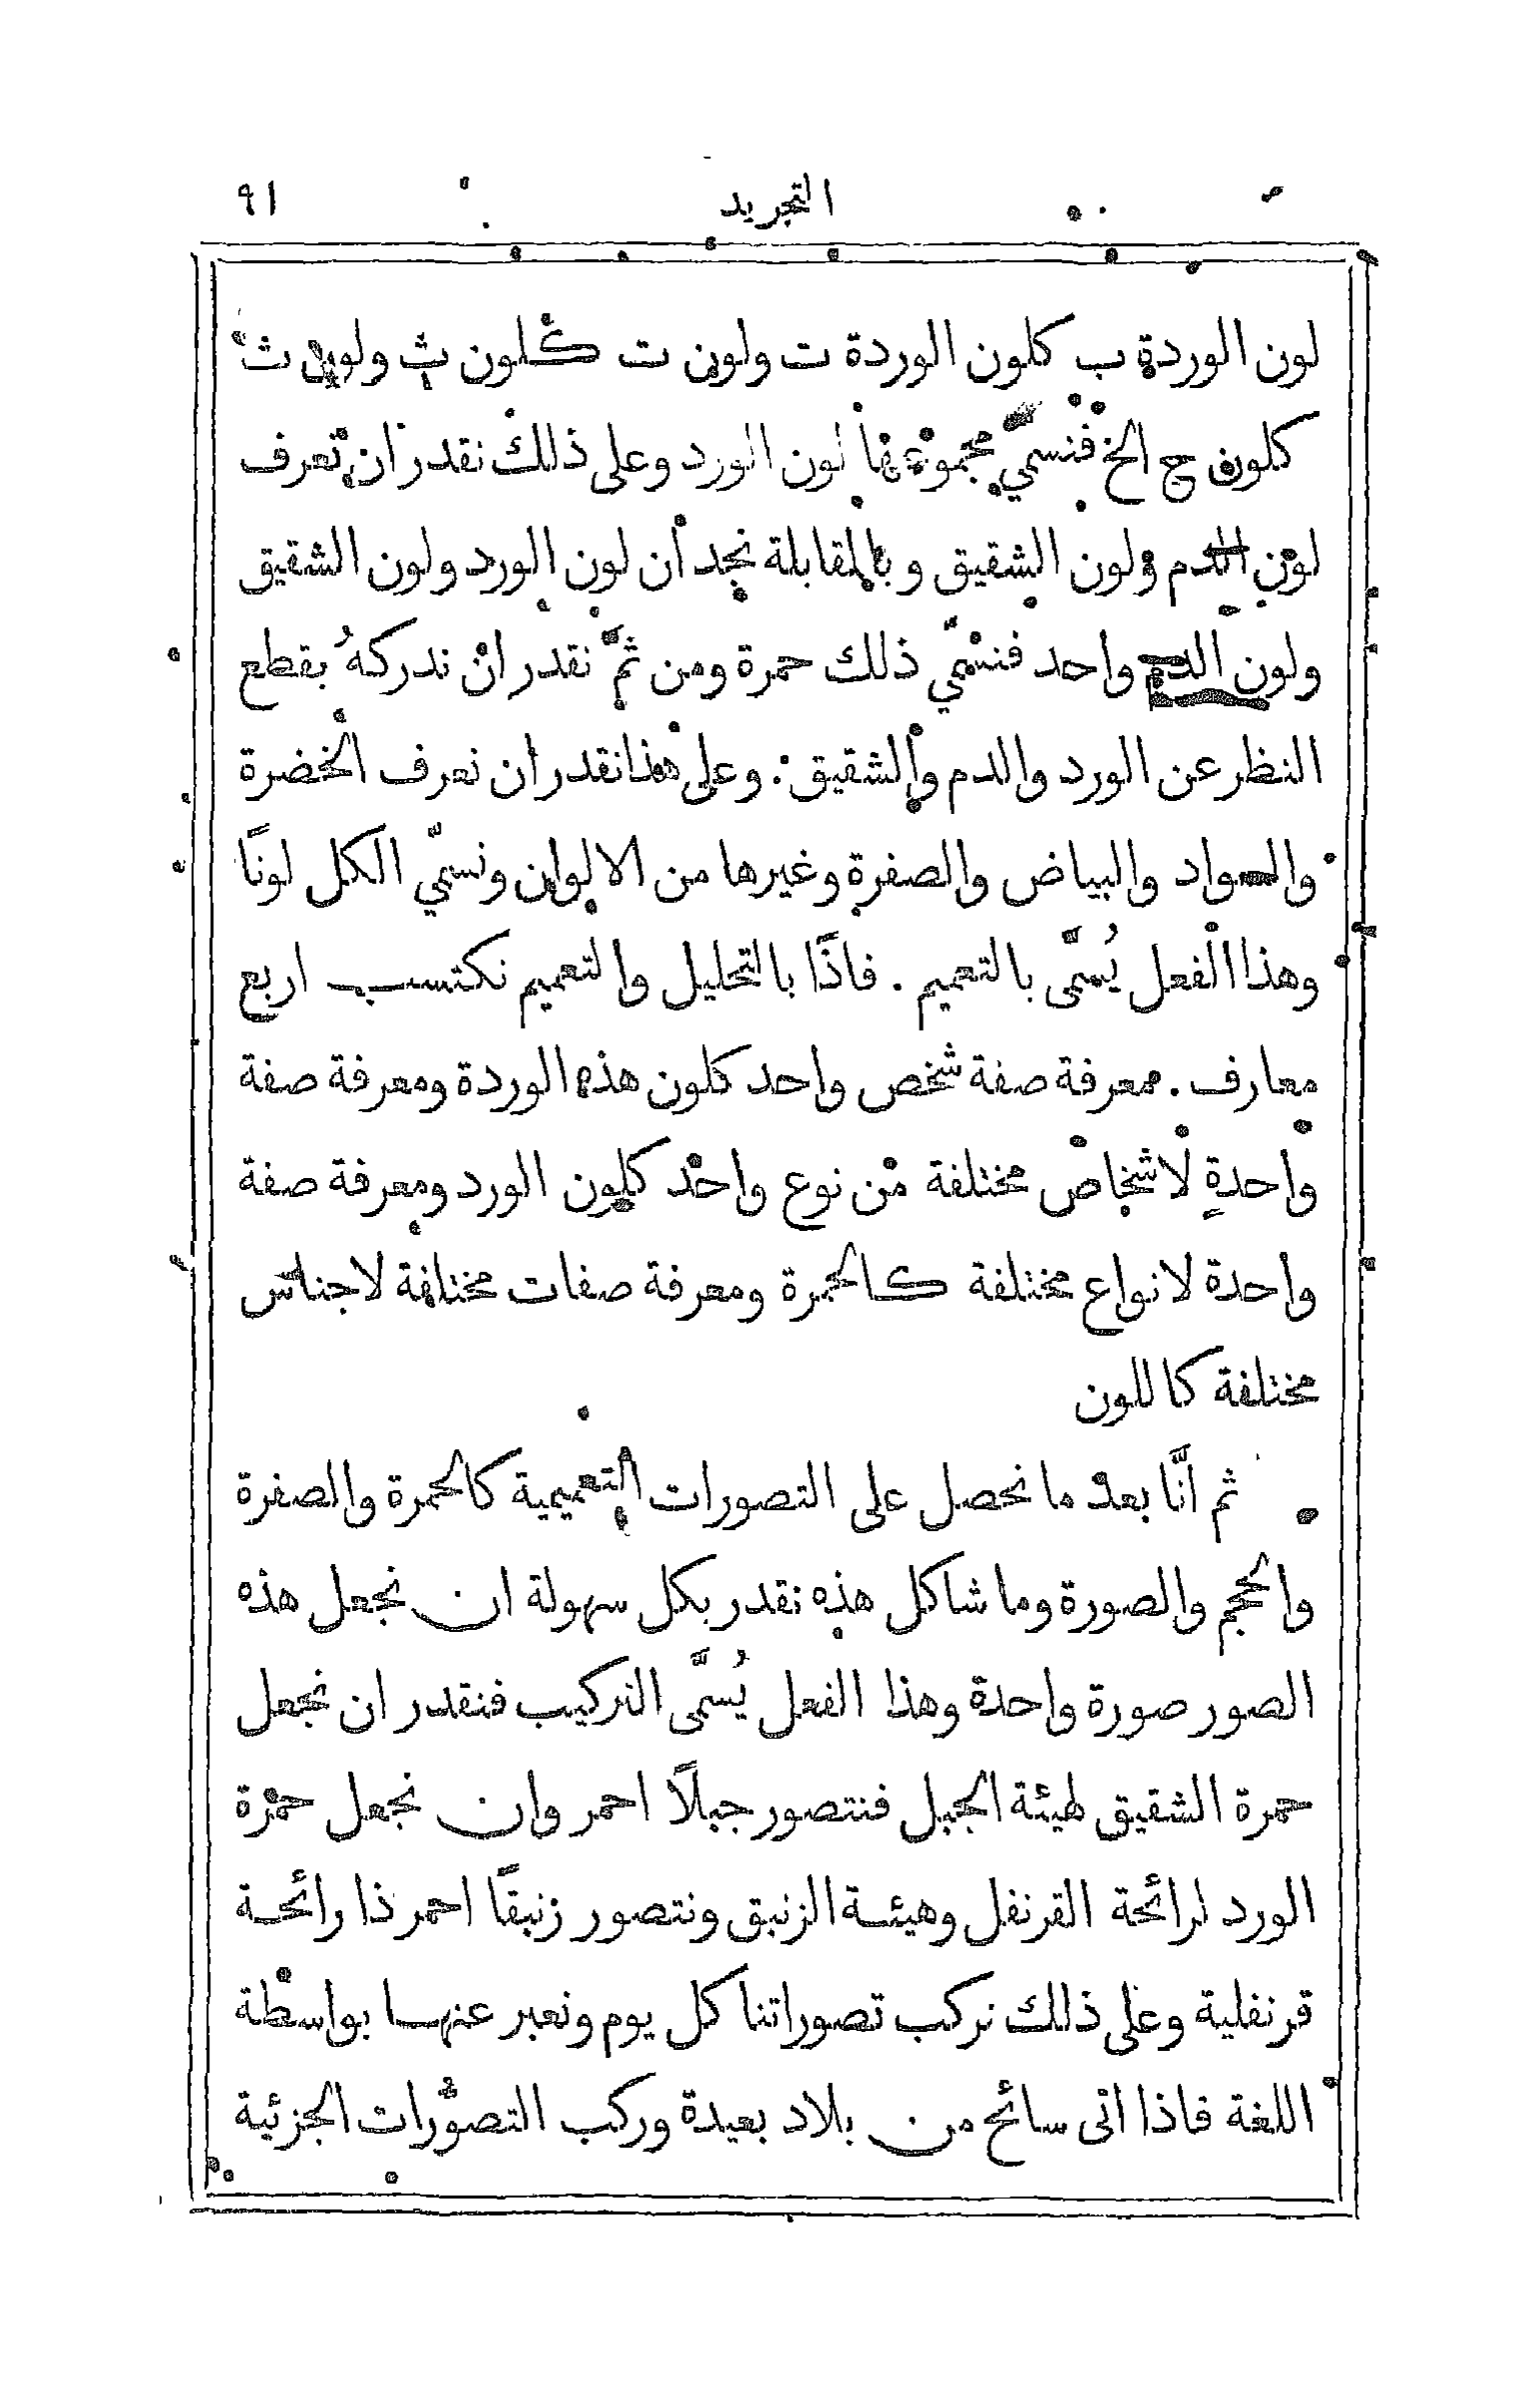 التجريد ٩١
لون الوردة ب كلون الوردة ت ولون ت كلون ث ولون ث
كلون ج الخ فنسمّي مجموعها لون الورد وعلى ذلك نقدر ان نعرف
لون الدم ولون الشقيق وبالمقابلة نجد ان لون الورد ولون الشقيق
ولون الدم واحد فنسمّي ذلك حمرة ومن ثمَّ نقدر ان ندركهُ بقطع
النظر عن الورد والدم والشقيق. وعلى هذا نقدر ان نعرف الخضرة
والسواد والبياض والصفرة وغيرها من الالوان ونسمّي الكل لونًا
وهذا الفعل يُسمَّى بالتعميم. فاذًا بالتحليل والتعميم نكتسب اربع
معارف. معرفة صفة شخص واحد كلون هذه الوردة ومعرفة صفة
واحدةٍ لاشخاص مختلفة من نوع واحد كلون الورد ومعرفة صفة
واحدة لانواع مختلفة كالحمرة ومعرفة صفات مختلفة لاجناس
مختلفة كاللون
ثم انَّا بعد ما نحصل على التصورات التعميمية كالحمرة والصفرة
والحجم والصورة وما شاكل هذه نقدر بكل سهولة ان نجعل هذه
الصور صورة واحدة وهذا الفعل يُسمَّى التركيب فنقدر ان نجعل
حمرة الشقيق لهيئة الجبل فنتصور جبلًا احمر وان نجعل حمرة
الورد لرائحة القرنفل وهيئة الزنبق ونتصور زنبقًا احمر ذا رائحة
قرنفلية وعلى ذلك نركب تصوراتنا كل يوم ونعبر عنها بواسطة
اللغة فاذا اتى سائح من بلاد بعيدة وركب التصوُّرات الجزئية